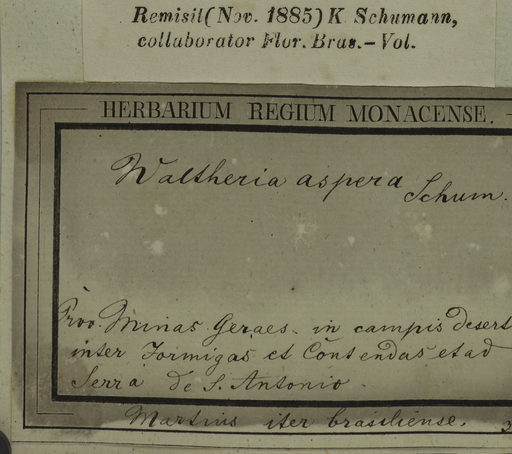 Remisit (Nov. 1885) K. Schumann,
collaborator Flor. Bras. – Vol.
HERBARIUM REGIUM MONACENSE.
Waltheria aspera
Schum.
Prov. Minas Geraes. in campis desert
inter Formigas et Contendas et ad
Serra de S. Antonio.
Martius iter brasiliense.